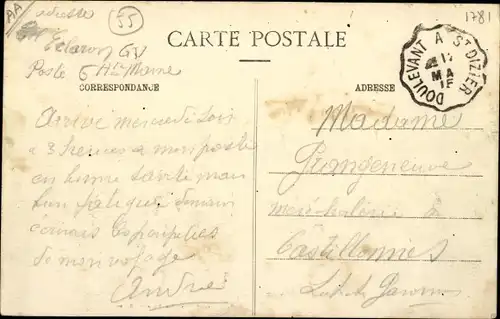 AA
adresse
55
1781
Eclaron GV
Poste 6 Hte Marne
CARTE POSTALE
DOULEVANT A ST DIZIER
17
MA
CORRESPONDANCE
ADRESSE
Arrivé mercredi soir
a 3 heures a mon poste
en bonne santé mais
bien fatigué
de mon voyage
André
Madame
Grangeneuve
à
Castillonnes
Lot et Garonne